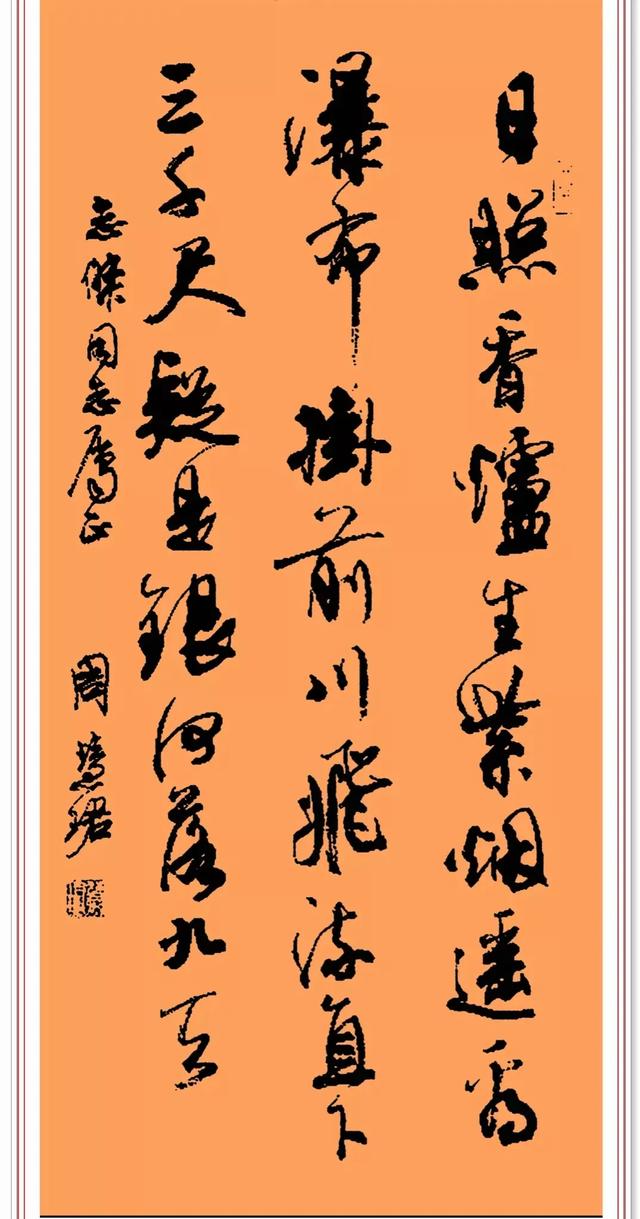 日照香爐生紫烟遥看
瀑布掛前川飛流直下
三千尺疑是銀河落九天
志傑同志属正
周慧珺